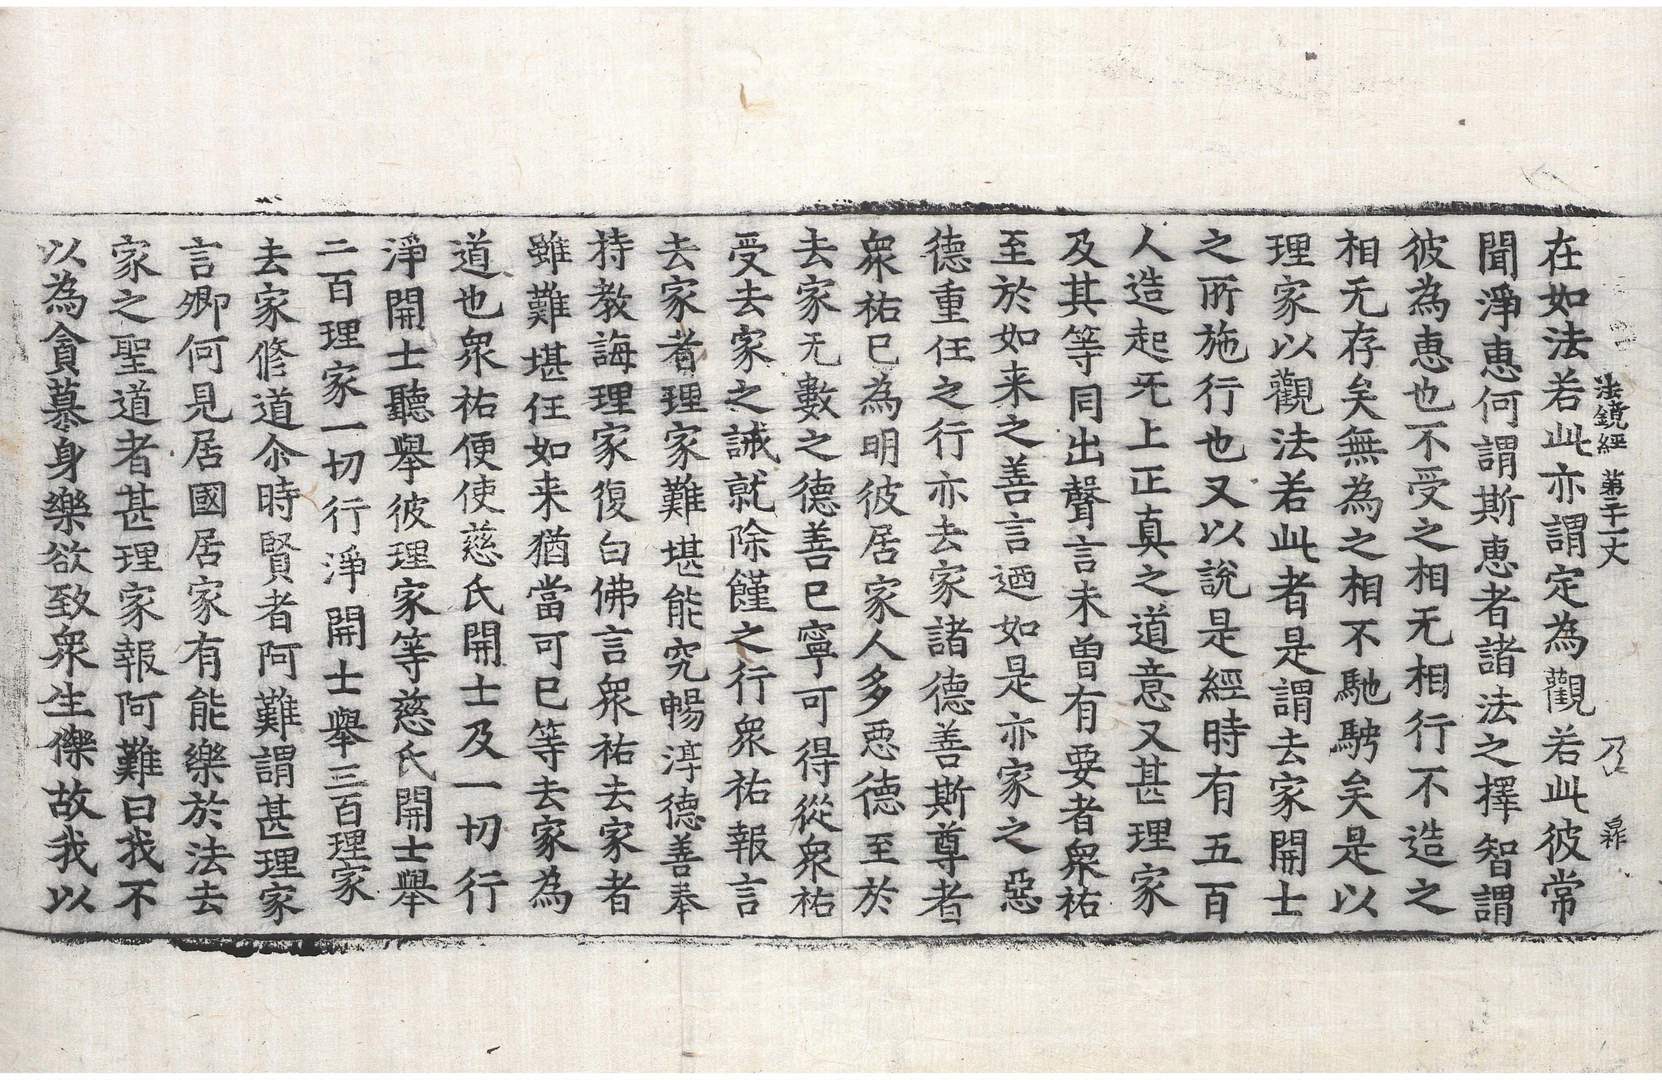 法鏡經 第二十一丈 乃
在如法若此亦謂定為觀若此彼常
聞淨惠何謂斯惠者諸法之擇智謂
彼為惠也不受之相无相行不造之
相无存矣無為之相不馳騁矣是以
理家以觀法若此者是謂去家開士
之所施行也又以說是經時有五百
人造起无上正真之道意又甚理家
及其等同出聲言未曾有要者衆祐
至於如来之善言迺如是亦家之惡
德重任之行亦去家諸德善斯尊者
衆祐已為明彼居家人多惡德至於
去家无數之德善已寧可得從衆祐
受去家之誡就除饉之行衆祐報言
去家者理家難堪能究暢淳德善奉
持教誨理家復白佛言衆祐去家者
雖難堪任如来猶當可已等去家為
道也衆祐便使慈氏開士及一切行
淨開士聽舉彼理家等慈氏開士舉
二百理家一切行淨開士舉三百理家
去家修道尒時賢者阿難謂甚理家
言卿何見居國居家有能樂於法去
家之聖道者甚理家報阿難曰我不
以為貪慕身樂欲致衆生傑故我以